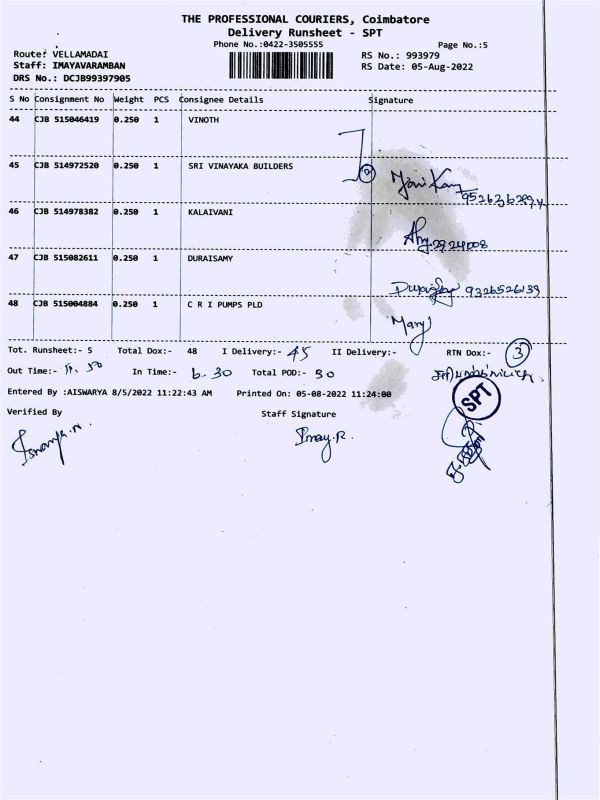 THE PROFESSIONAL COURIERS, Coimbatore
Delivery Runsheet - SPT
Phone No.:0422-3505555
Page No.:5
Route: VELLAMADAI
RS No.: 993979
Staff: IMAYAVARAMBAN
RS Date: 05-Aug-2022
DRS No.: DCJB99397905
S No Consignment No Weight PCS Consignee Details Signature
44 CJB 515046419 0.250 1 VINOTH
45 CJB 514972520 0.250 1 SRI VINAYAKA BUILDERS
46 CJB 514978382 0.250 1 KALAIVANI
47 CJB 515082611 0.250 1 DURAISAMY
9326526139
48 CJB 515004884 0.250 1 C R I PUMPS PLD
Mary
Tot. Runsheet:- 5 Total Dox:- 48 I Delivery:- 45 II Delivery:- RTN Dox:- 3
Out Time:- In Time:- 6.30 Total POD:- 30
SPT
Entered By :AISWARYA 8/5/2022 11:22:43 AM Printed On: 05-08-2022 11:24:00
Verified By Staff Signature
Imay.R.